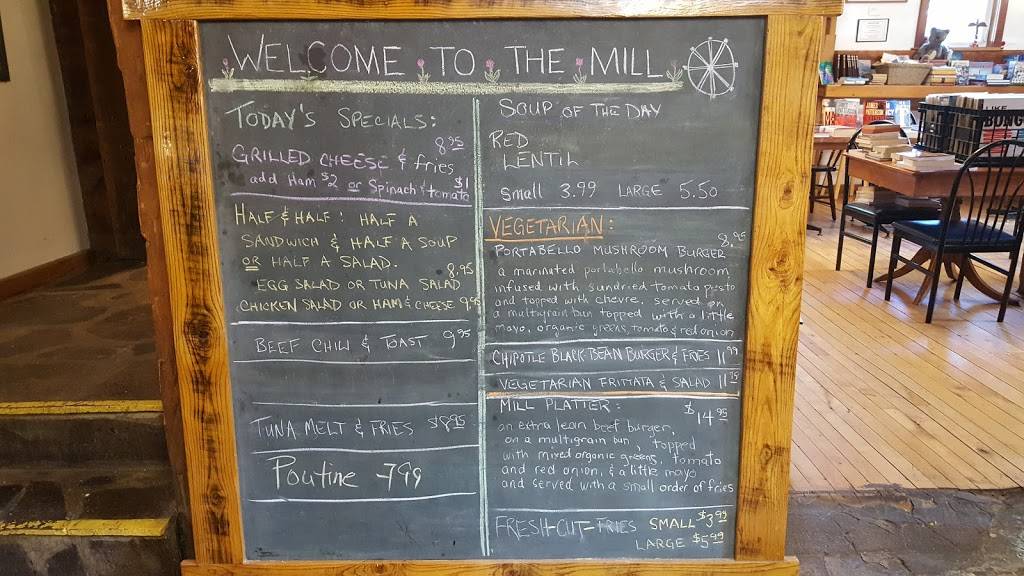 WELCOME TO THE MILL
TODAY'S SPECIALS:
8.95
GRILLED CHEESE & fries
add Ham $2 or Spinach & tomato $1
HALF & HALF: HALF A
SANDWICH & HALF A SOUP
OR HALF A SALAD.
8.95
EGG SALAD OR TUNA SALAD
CHICKEN SALAD OR HAM & CHEESE 9.95
BEEF CHILI & TOAST 9.95
TUNA MELT & FRIES $8.95
Poutine 7.99
SOUP OF THE DAY
RED
LENTIL
Small 3.99 LARGE 5.50
VEGETARIAN:
8.95
PORTABELLO MUSHROOM BURGER
a marinated portabello mushroom
infused with sundried tomato pesto
and topped with chevre, served on
a multigrain bun topped with a little
mayo, organic greens, tomato & red onion
CHIPOTLE BLACK BEAN BURGER & FRIES 11.99
VEGETARIAN FRITTATA & SALAD
MILL PLATTER: $14.95
an extra lean beef burger,
on a multigrain bun, topped
with mixed organic greens, tomato
and red onion, & a little mayo
and served with a small order of fries
FRESH-CUT-FRIES SMALL $3.99
LARGE $5.99
LIKE